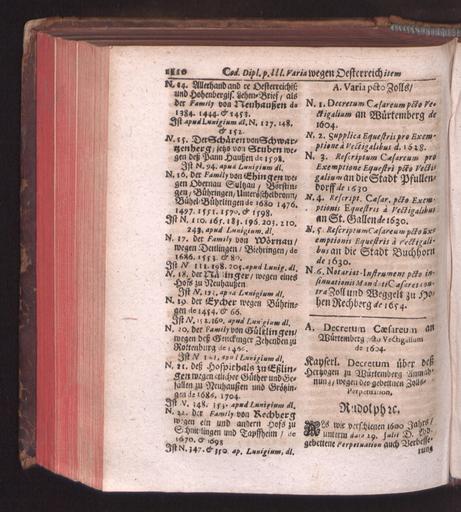 1110 Cod. Dipl. p. III. Varia wegen Oesterreich item
N. 14. Allerhand and re Oesterreichis:
und Hohenbergis. Lehen-Brief, als
der Family von Neuhaußen de
1384. 1444. & 1453.
Ist apud Lunigium dl. N. 127. 148.
& 152.
N. 15. Der Schären von Schwar-
tzenberg, jetzo von Stuben we-
gen deß Bann Haußen de 1598.
Ist N. 94. apud Lunigium dl.
N. 16. der Family von Ehingen we-
gen Obernau Sulgau, Börstin-
gen, Bühringen, Unterscheidrohn,
Bühel-Bühringen de 1680 1476.
1497. 1551. 1570. & 1598.
Ist N. 160. 165. 183. 196. 203. 210.
243. apud Lunigium. dl.
N. 17. der Family von Wörnau,
wegen Dettingen / Biehringen, de
1686. 1553. & 80.
Ist N. 111. 198. 205. apud Lunig. dl.
N. 18. der / wegen eines
Hofs zu Neuhausen
Ist N. apud Lunigium dl,
N. 19. der Eycher wegen Bührin-
gen de 1454. & 66.
Ist N. 152. 160. apud Lunigium dl,
N. 20. der Family von Gültlingen /
wegen deß Zehenden zu
Rottenburg de
Ist N. apud Lunigium dl,
N. 21. deß Hospithals zu Eßlin-
gen wegen etlicher Güther und Ge-
fällen zu Neuhausen und Grözin-
gen de 1686. 1704.
Ist N. 248. 353. apud Lunigium dl,
N. 22. der Family von Rechberg
wegen ein und andern Hofs zu
und Tapffheim / de
1670. & 1698
Ist N. 347. & 350. ap. Lunigium, dl.
A. Varia pcto Zolls /
N. 1. Decretum Cæsareum pcto Ve-
ctigalium an Würtenberg de
1604.
N. 2. Supplica Equestris pro Exem-
ptione à Vectigalibus d. 1628.
N. 3. Rescriptum Cæsareum pro
Exemptione Equestri pcto Vecti
galium an die Stadt Pfullen-
dorff de 1630
N. 4. Rescript. Cæsar. pcto Exem-
ptionis Equestris à Vectigalibus
an St. Gallen de 1620.
N. 5. Rescriptum Cæsareum pcto Ex
emptionis Equestris à Vectigali-
bus an die Stadt Buchhorn
de 1630.
N. 6. Notariat-Instrument pcto in-
sinuationis Mandati Cæsarei con-
tra Zoll und Weggelt zu Ho-
hen Rechberg de 1654.
A. Decretum Cæsareum an
Würtemberg pcto Vectigalium
de 1604.
Kayserl. Decretum über deß
Hertzogen zu Würtemberg Anmah-
nung / wegen der gebettnen Zolls-
Perpetuation.
Rudolph ꝛc.
Als wir verschienen 1600 Jahrs /
unterm dato 29. Julii D. Lbd.
gebettene Perpetuation auch Verbesse-
rung